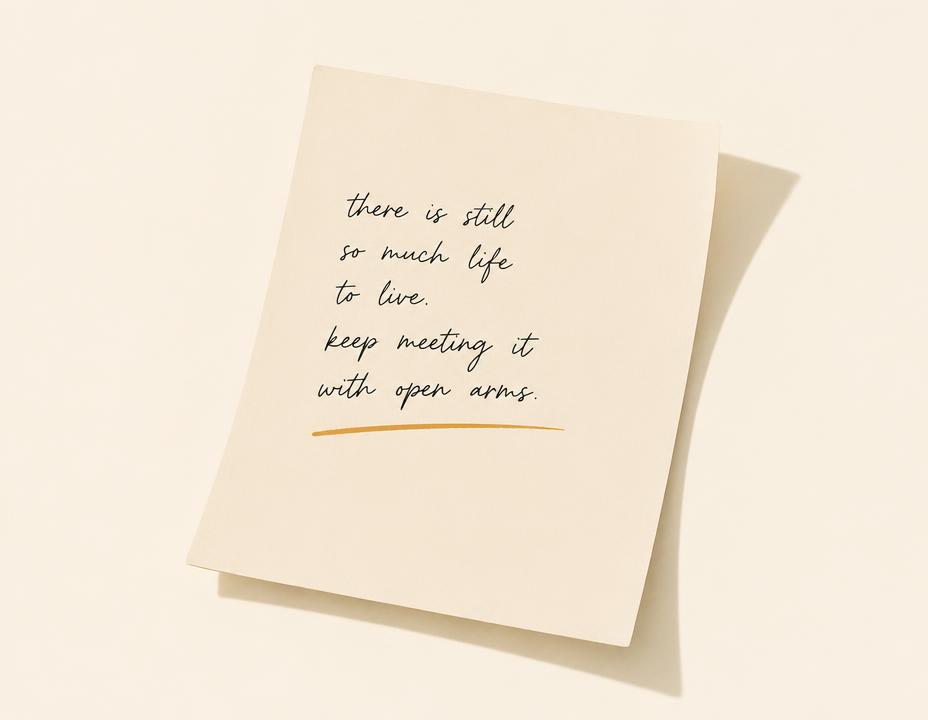 there is still
so much life
to live.
keep meeting it
with open arms.